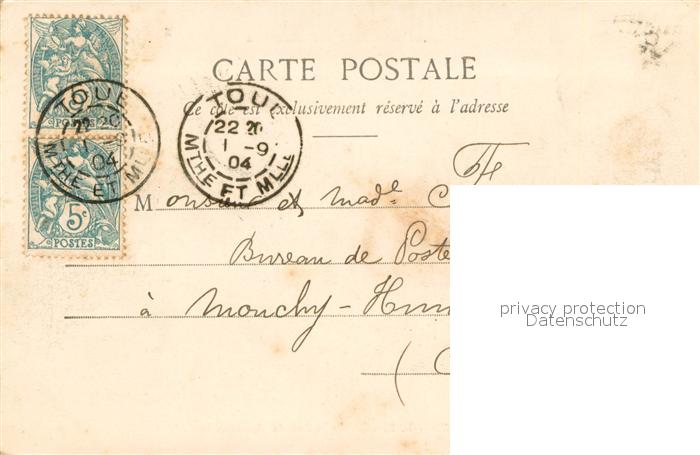 CARTE POSTALE
Ce côté est exclusivement réservé à l'adresse
TOUL
22 20
1 -9
04
MTHE ET MLLE
TOUL
22 20
1 -9
04
MTHE ET MLLE
POSTES
5c
POSTES
Monsieur et Made
Bureau de Poste
à Monchy-Hum
(
privacy protection
Datenschutz